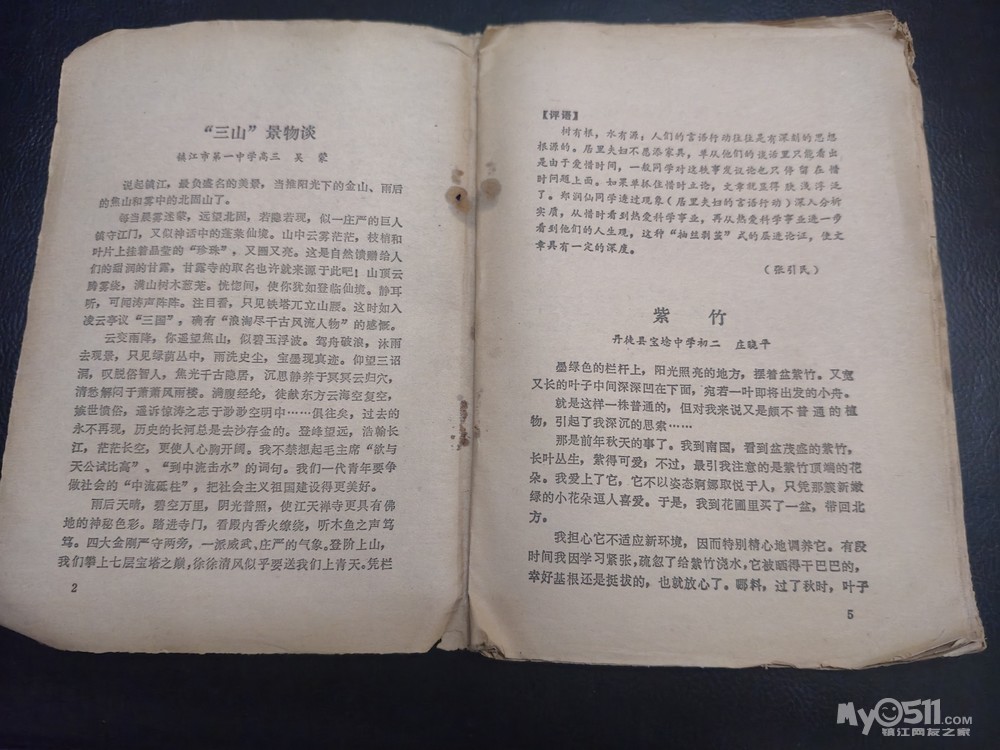 “三山”景物谈
镇江市第一中学高三 吴 蒙
说起镇江，最负盛名的美景，当推阳光下的金山、雨后
的焦山和雾中的北固山了。
每当晨雾迷蒙，远望北固，若隐若现，似一庄严的巨人
镇守江门，又似神话中的蓬莱仙境。山中云雾茫茫，枝梢和
叶片上挂着晶莹的“珍珠”，又圆又亮。这是自然馈赠给人
们的甜润的甘露，甘露寺的取名也许就来源于此吧！山顶云
腾雾绕，满山树木葱茏。恍惚间，使你犹如登临仙境。静耳
听，可闻涛声阵阵。注目看，只见铁塔兀立山腰。这时如入
凌云亭议“三国”，确有“浪淘尽千古风流人物”的感慨。
云变雨降，你遥望焦山，似碧玉浮波。驾舟破浪，沐雨
去观景，只见绿荫丛中，雨洗史尘，宝墨现真迹。仰望三诏
洞，叹脱俗智人，焦光千古隐居，沉思静养于冥冥云归穴，
清愁解闷于萧萧风雨楼。满腹经纶，徒献东方云海空复空，
嫉世愤俗，遥诉惊涛之志于渺渺空明中……俱往矣，过去的
永不再现，历史的长河总是去沙存金的。登峰望远，浩翰长
江，茫茫长空，更使人心胸开阔。我不禁想起毛主席“欲与
天公试比高”、“到中流击水”的词句。我们一代青年要争
做社会的“中流砥柱”，把社会主义祖国建设得更美好。
雨后天晴，碧空万里，阴光普照，使江天禅寺更具有佛
地的神秘色彩。踏进寺门，看殿内香火缭绕，听木鱼之声笃
笃。四大金刚严守两旁，一派威武、庄严的气象。登阶上山，
我们攀上七层宝塔之巅，徐徐清风似乎要送我们上青天。凭栏
2
【评语】
树有根，水有源；人们的言语行动往往是有深刻的思想
根源的。居里夫妇不愿添家具，单从他们的谈话里只能看出
是由于爱惜时间，一般同学对这轶事发议论也只停留在惜
时问题上面。如果单抓住惜时立论，文章就显得肤浅浮泛
了。郑润仙同学透过现象（居里夫妇的言语行动）深入分析
实质，从惜时看到热爱科学事业，再从热爱科学事业进一步
看到他们的人生观，这种“抽丝剥茧”式的层进论证，使文
章具有一定的深度。
（张引民）
紫 竹
丹徒县宝埝中学初二 庄晓平
墨绿色的栏杆上，阳光照亮的地方，摆着盆紫竹。又宽
又长的叶子中间深深凹在下面，宛若一叶即将出发的小舟。
就是这样一株普通的，但对我来说又是颇不普通的植
物，引起了我深沉的思索……
那是前年秋天的事了。我到南国，看到盆茂盛的紫竹，
长叶丛生，紫得可爱，不过，最引我注意的是紫竹顶端的花
朵。我爱上了它，它不以姿态婀娜取悦于人，只凭那簇新嫩
绿的小花朵逗人喜爱。于是，我到花圃里买了一盆，带回北
方。
我担心它不适应新环境，因而特别精心地调养它。有段
时间我因学习紧张，疏忽了给紫竹浇水，它被晒得干巴巴的，
幸好基根还是挺拔的，也就放心了。哪料，过了秋时，叶子
5
My0511.com
镇江网友之家